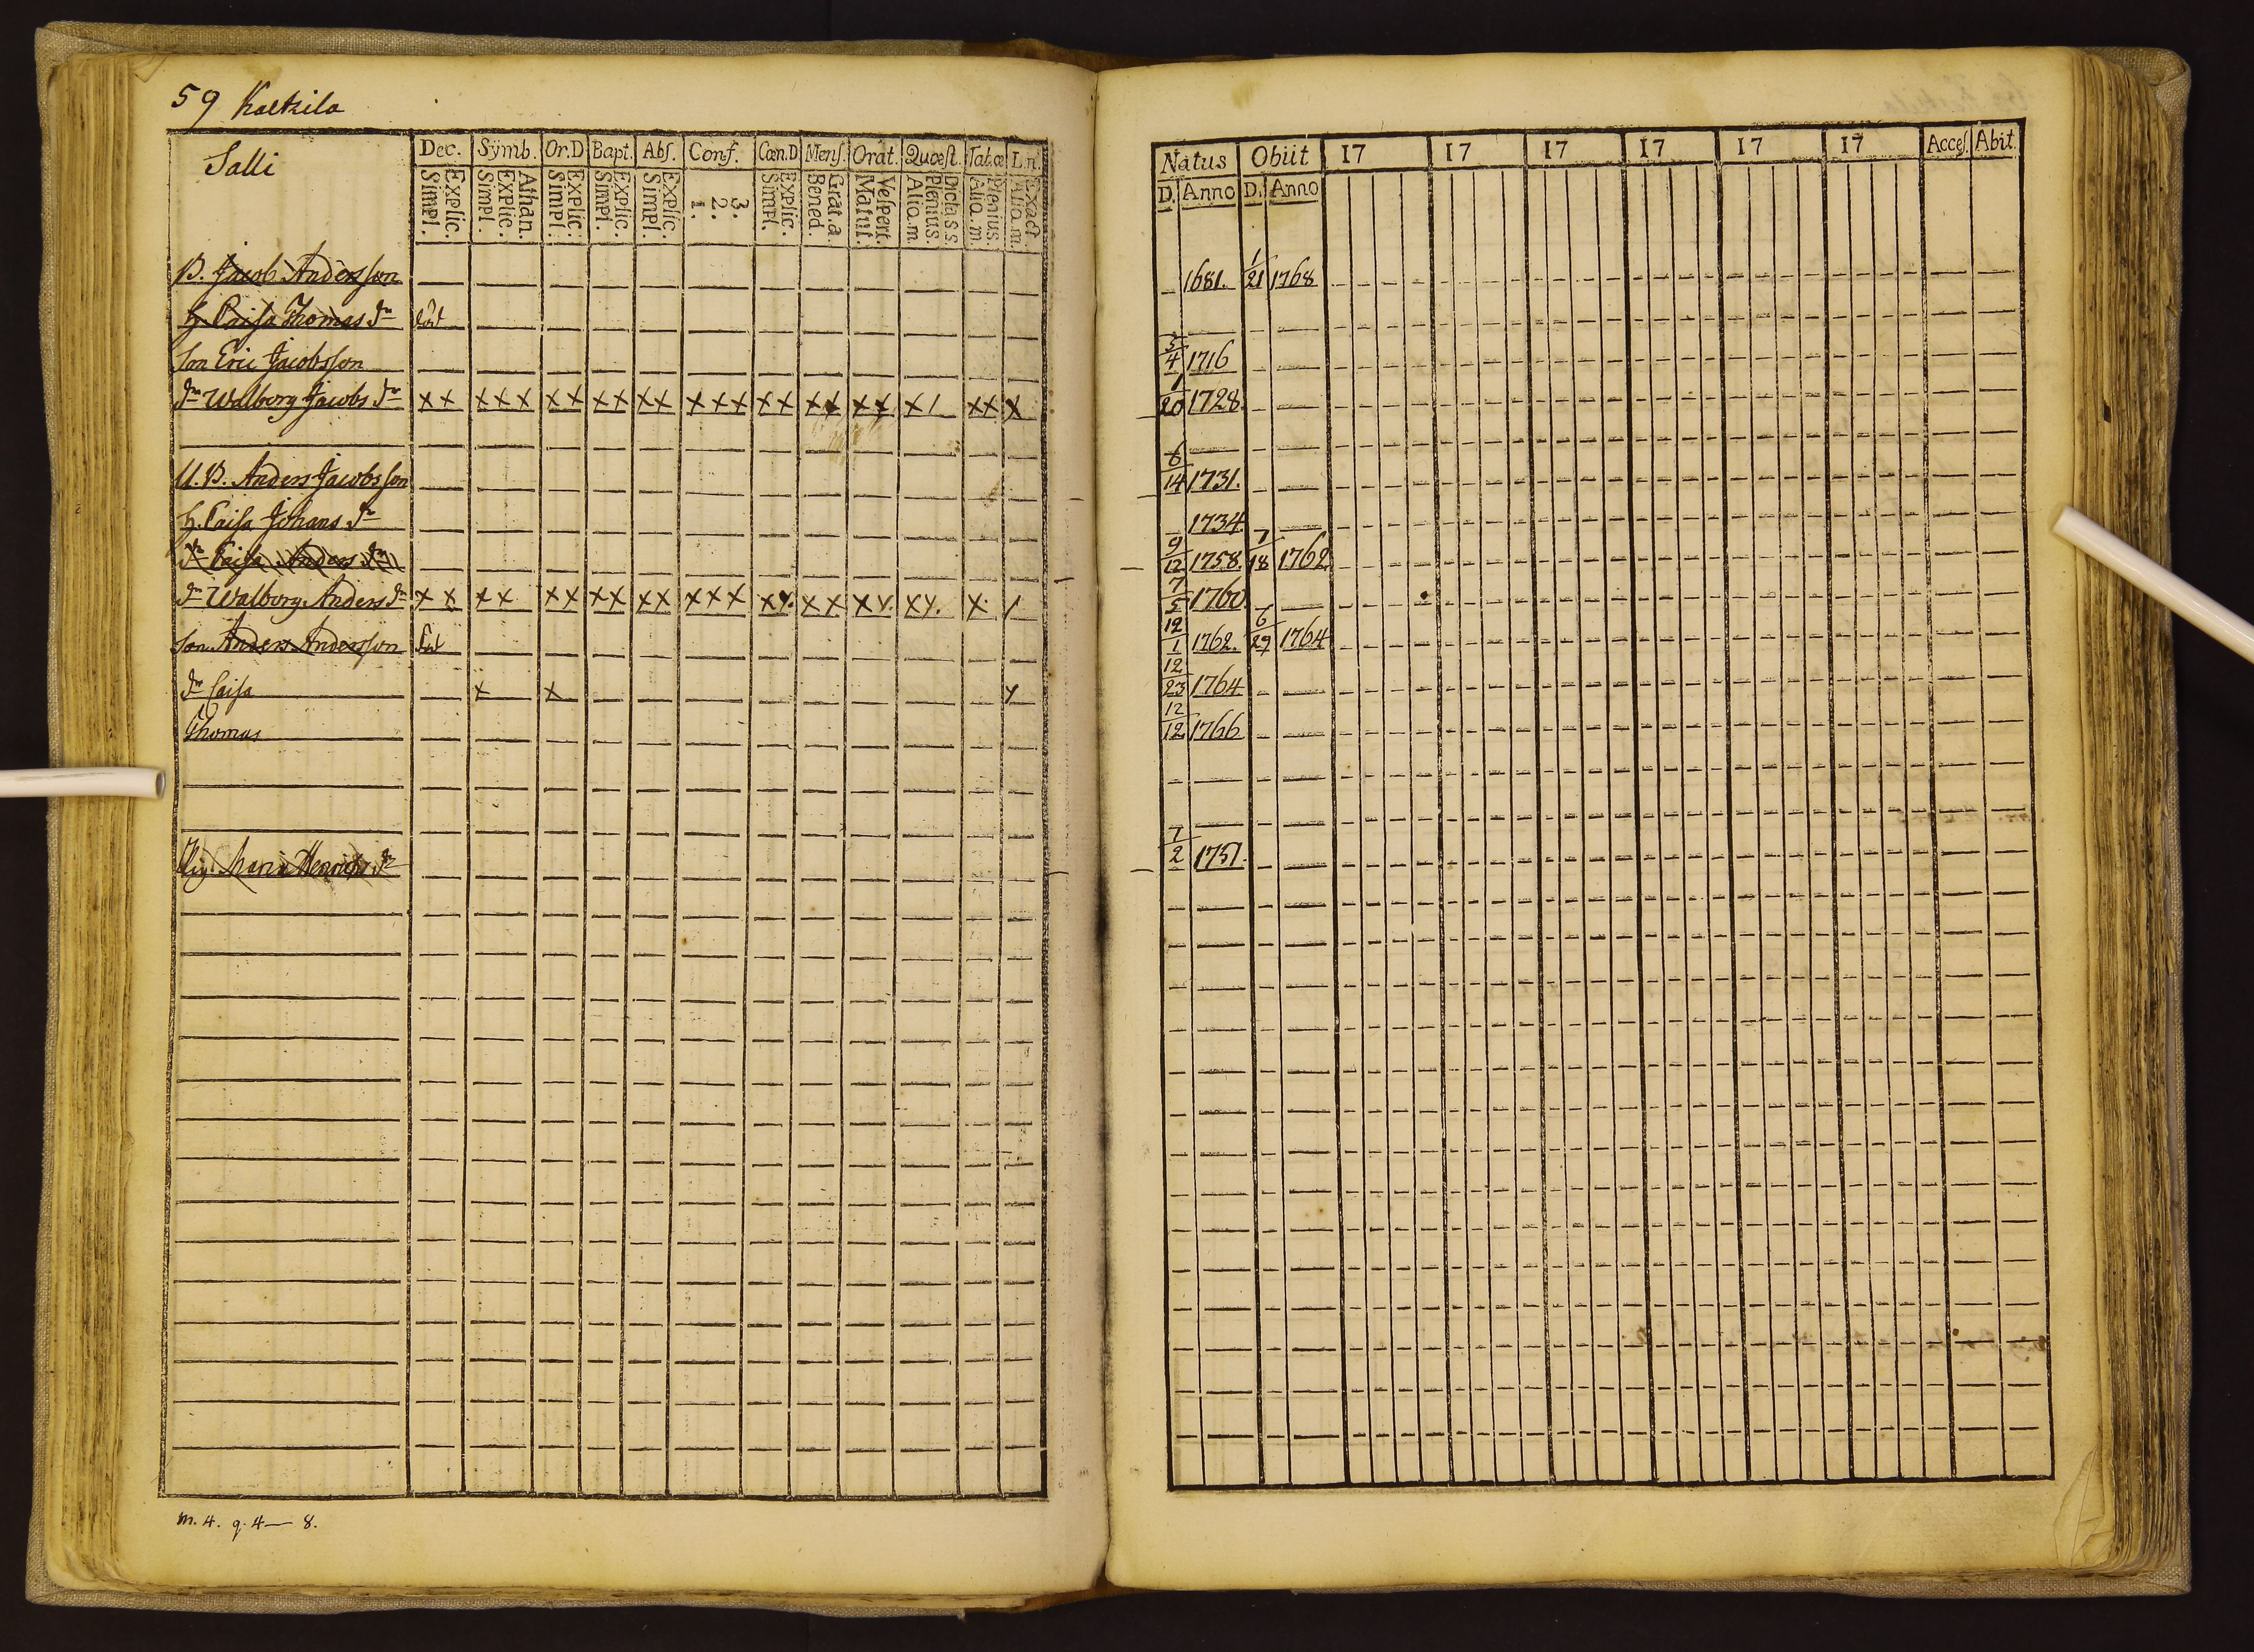 59 Kaekzila
Salli
Dec. Sÿmb. Or.D Bapt. Abſ. Conf. Cœn.D Menſ. Orat. Quœſt. Tab.œ L.n.
Simpl. Explic. Simpl. Explic. Athan. Simpl. Explic. Simpl. Explic. Simpl. Explic. 1. 2. 3. Simpl. Explic. Bened. Grat.a. Matut. Veſpert. Aliq.m Plenius. Dicta s.s. Aliq.m. Plenius. Aliq.m. Exact.
B. Jacob Andersſon
H. Caiſa Thomas dr död
Son Eric Jacobsſon
dr Walborg Jacobs dr x x x x x x x x x x x x x x x x x x x x x 1 x x x
U. B. Anders Jacobsſon
H. Caiſa Johans dr
dr Caiſa Anders dr
dr Walborg Anders dr x x x x x x x x x x x x x x y. x x x y. x y. x /
Son Anders Andersſon
dr Caiſa x x y
Thomas
Maria Henrichs dr
m. 4. q. 4 — 8.
Natus Obiit 17 17 17 17 17 17 Acceſ. Abit.
D. Anno D. Anno
1681. 1/21 1768
3/4 1716
1/20 1728.
6/14 1731.
1734.
9/12 1758. 7/18 1762.
7/5 1760.
12/1 1762. 6/29 1764
12/23 1764
12/12 1766
7/2 1751.